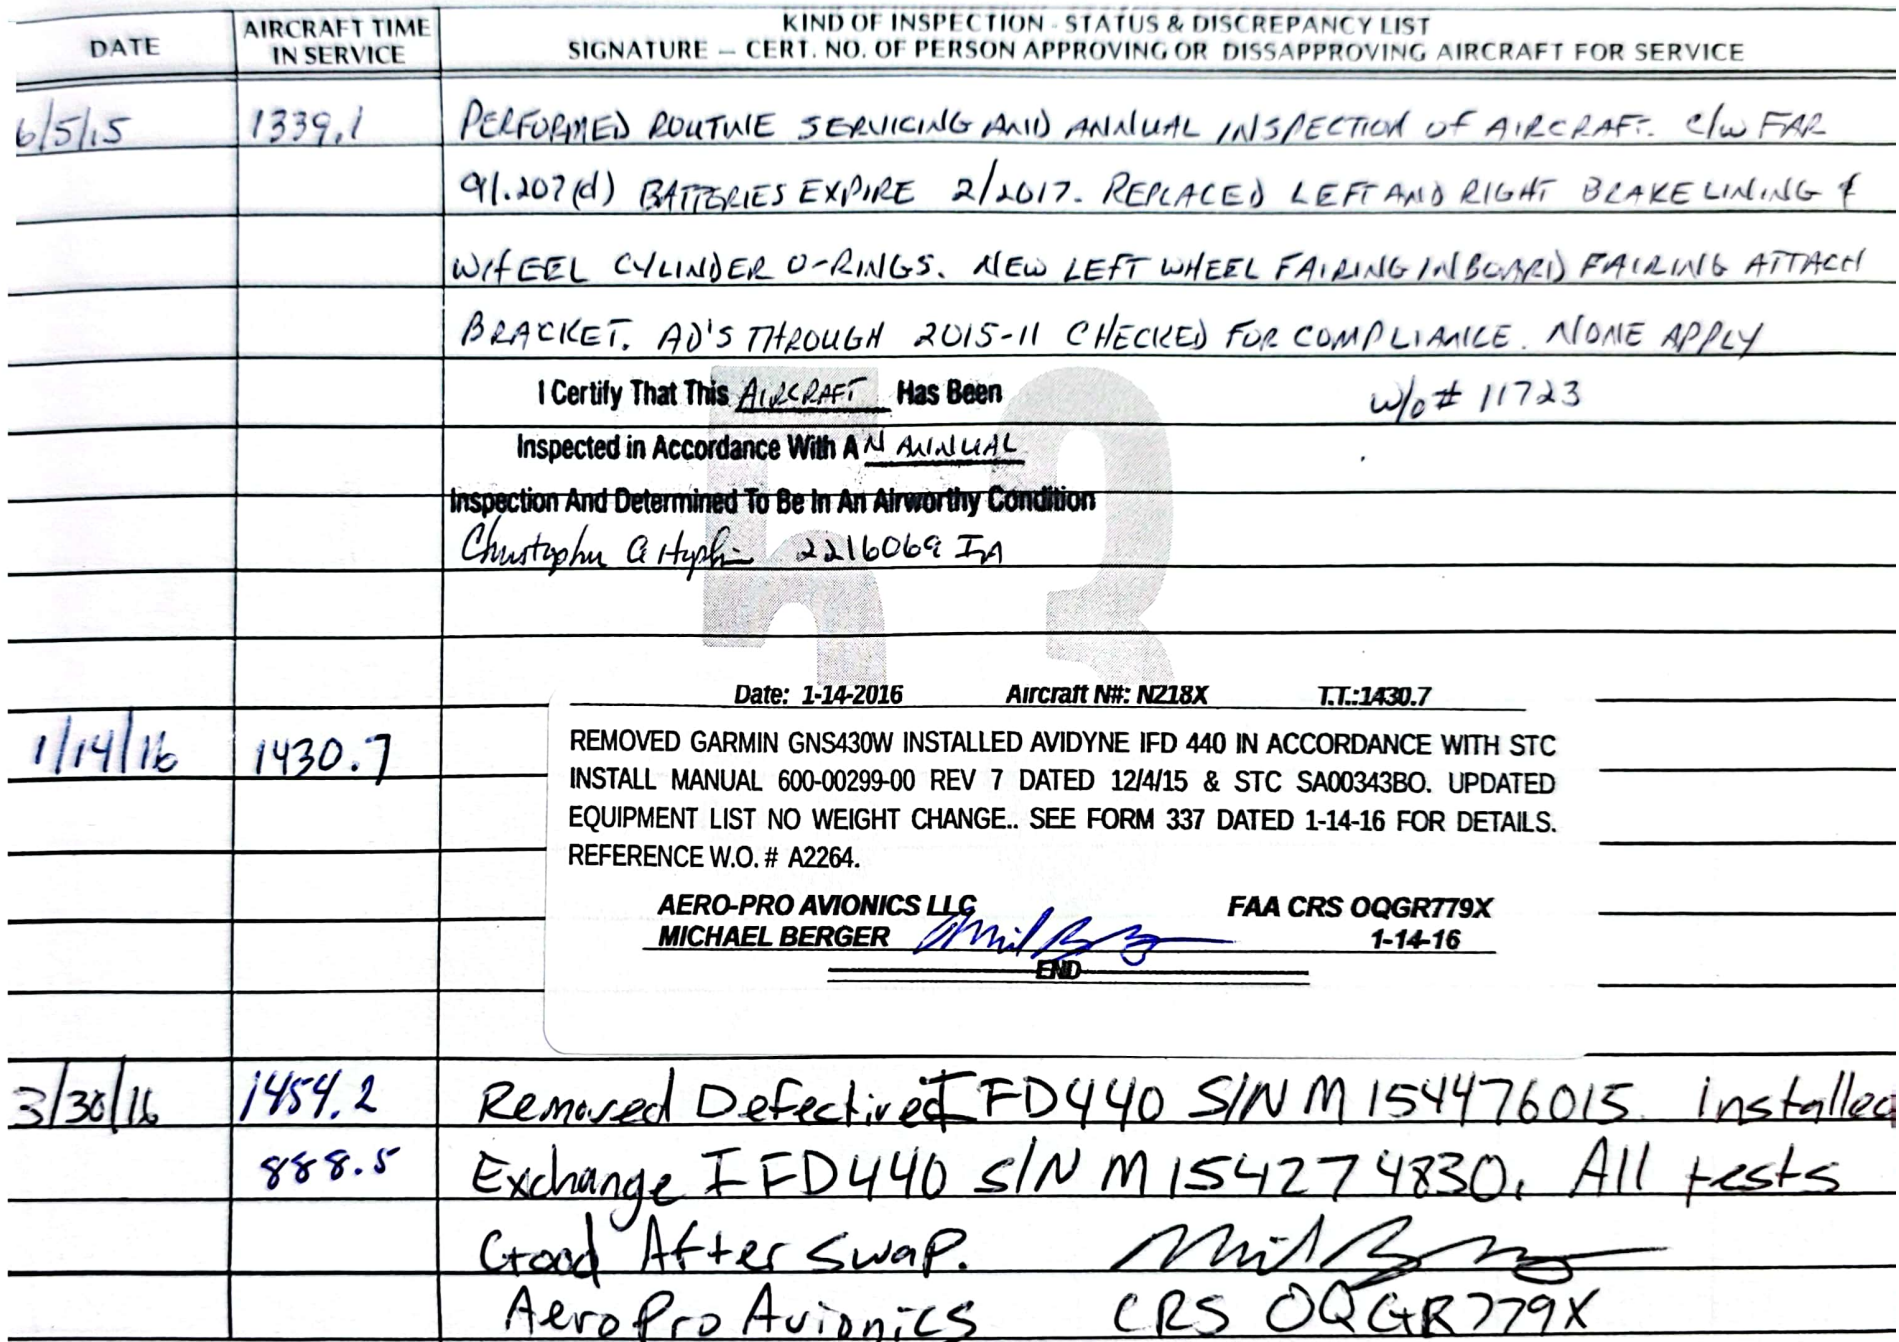 DATE
AIRCRAFT TIME
IN SERVICE
KIND OF INSPECTION - STATUS & DISCREPANCY LIST
SIGNATURE — CERT. NO. OF PERSON APPROVING OR DISSAPPROVING AIRCRAFT FOR SERVICE
6/5/15 1339.1 PERFORMED ROUTINE SERVICING AND ANNUAL INSPECTION OF AIRCRAFT. C/W FAR
91.207(d) BATTERIES EXPIRE 2/2017. REPLACED LEFT AND RIGHT BRAKE LINING &
WHEEL CYLINDER O-RINGS. NEW LEFT WHEEL FAIRING INBOARD FAIRING ATTACH
BRACKET. AD'S THROUGH 2015-11 CHECKED FOR COMPLIANCE. NONE APPLY
I Certify That This AIRCRAFT Has Been W/O # 11723
Inspected in Accordance With AN ANNUAL
Inspection And Determined To Be In An Airworthy Condition
Christopher A 2216069 IA
53
Date: 1-14-2016 Aircraft N#: N218X T.T.:1430.7
1/14/16 1430.7
REMOVED GARMIN GNS430W INSTALLED AVIDYNE IFD 440 IN ACCORDANCE WITH STC
INSTALL MANUAL 600-00299-00 REV 7 DATED 12/4/15 & STC SA00343BO. UPDATED
EQUIPMENT LIST NO WEIGHT CHANGE.. SEE FORM 337 DATED 1-14-16 FOR DETAILS.
REFERENCE W.O. # A2264.
AERO-PRO AVIONICS LLC FAA CRS OQGR779X
MICHAEL BERGER 1-14-16
END
3/30/16 1454.2 Removed Defective IFD440 S/N M154476015. Installed
888.5 Exchange IFD440 S/N M154274830. All tests
Good After swap.
Aero Pro Avionics CRS OQGR779X